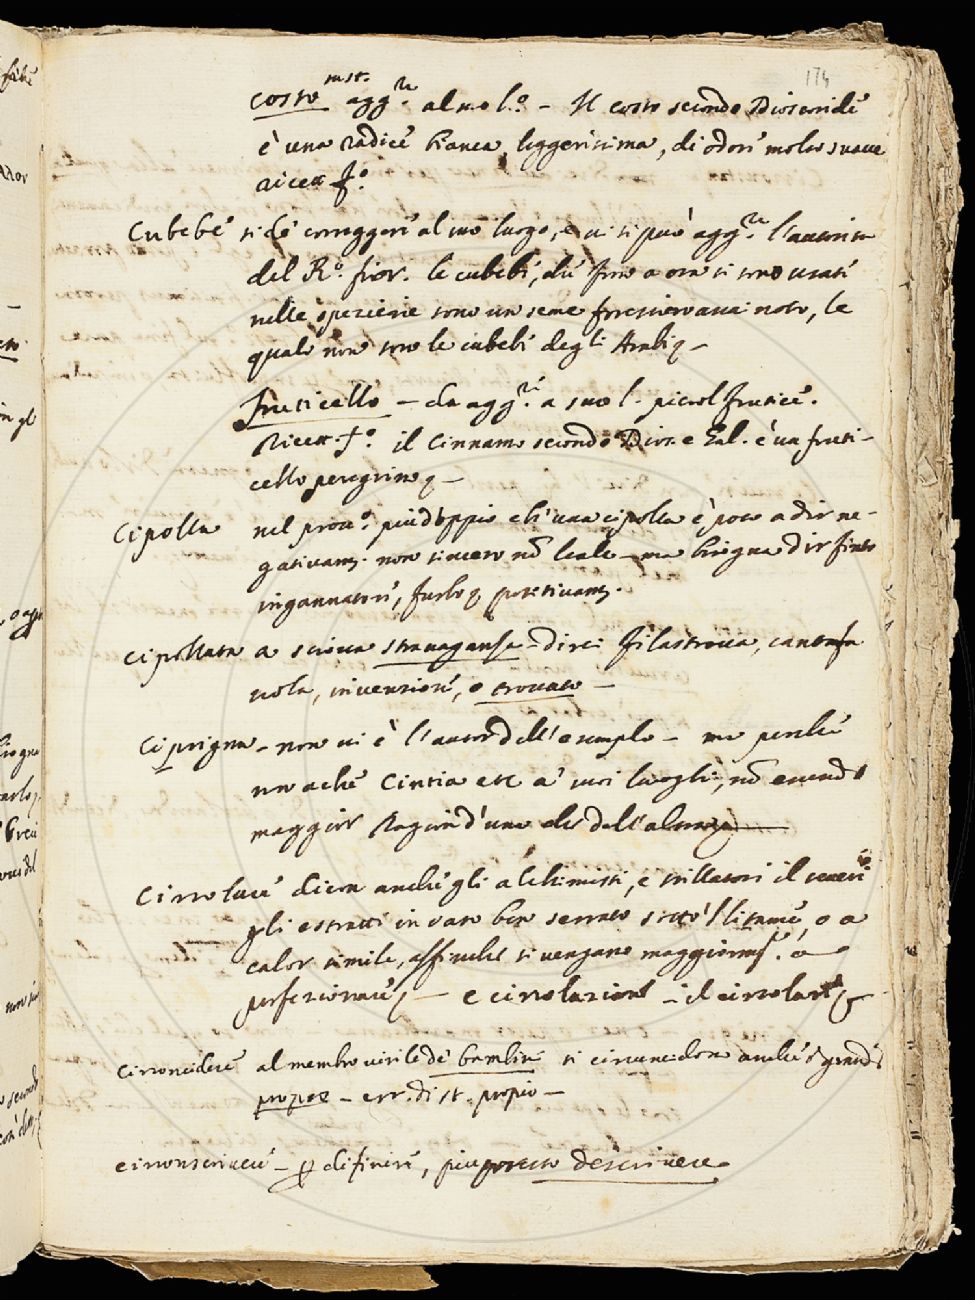 174
costo mst. agg.re al suo l.o – Il costo secondo Dioscoride
è una radice bianca leggerissima, di odore molto suave
Ricett. f.o
Cubebe si de' correggere al suo luogo, e vi si può agg.re l'autorità
del R.o fior. le cubebe, che fino a ora si sono usate
nelle spezierie sono un seme forestiero assai noto, le
quali non sono le cubebe degli Arabi –
fruticello – da agg.re a suo l. piccol frutice.
Ricett. f.o il Cinnamo secondo Dios. e Gal. è un fruti-
cello peregrino –
Cipolla nel prov.o più doppio ch'una cipolla è poco a dir ne-
gativam. non sincero nō leale – ma bisogna dir finto
ingannatore, furbo positivam.
Cipollata a sciocca stravaganza – direi filastrocca, cantafa
vola, invenzione, o trovato –
Ciprigna – non vi è l'autor dell'esempio – ma perchè
non anche Cintia etc a' suoi luoghi, nō essendo
maggior ragion d'una che dell'altra
Circolare dicon anche gli alchimisti, e stillatori il tener
gli estratti in vaso ben serrato sotto 'l litame, o a
calor simile, affinche si vengano maggiorm. a
perfezionare – e circolazione – il circolare
Circoncidere al membro virile de' bambini si circoncidon anche i grandi
propos – err. di st. propio –
circonscrivere – p definire, piuttosto descrivere